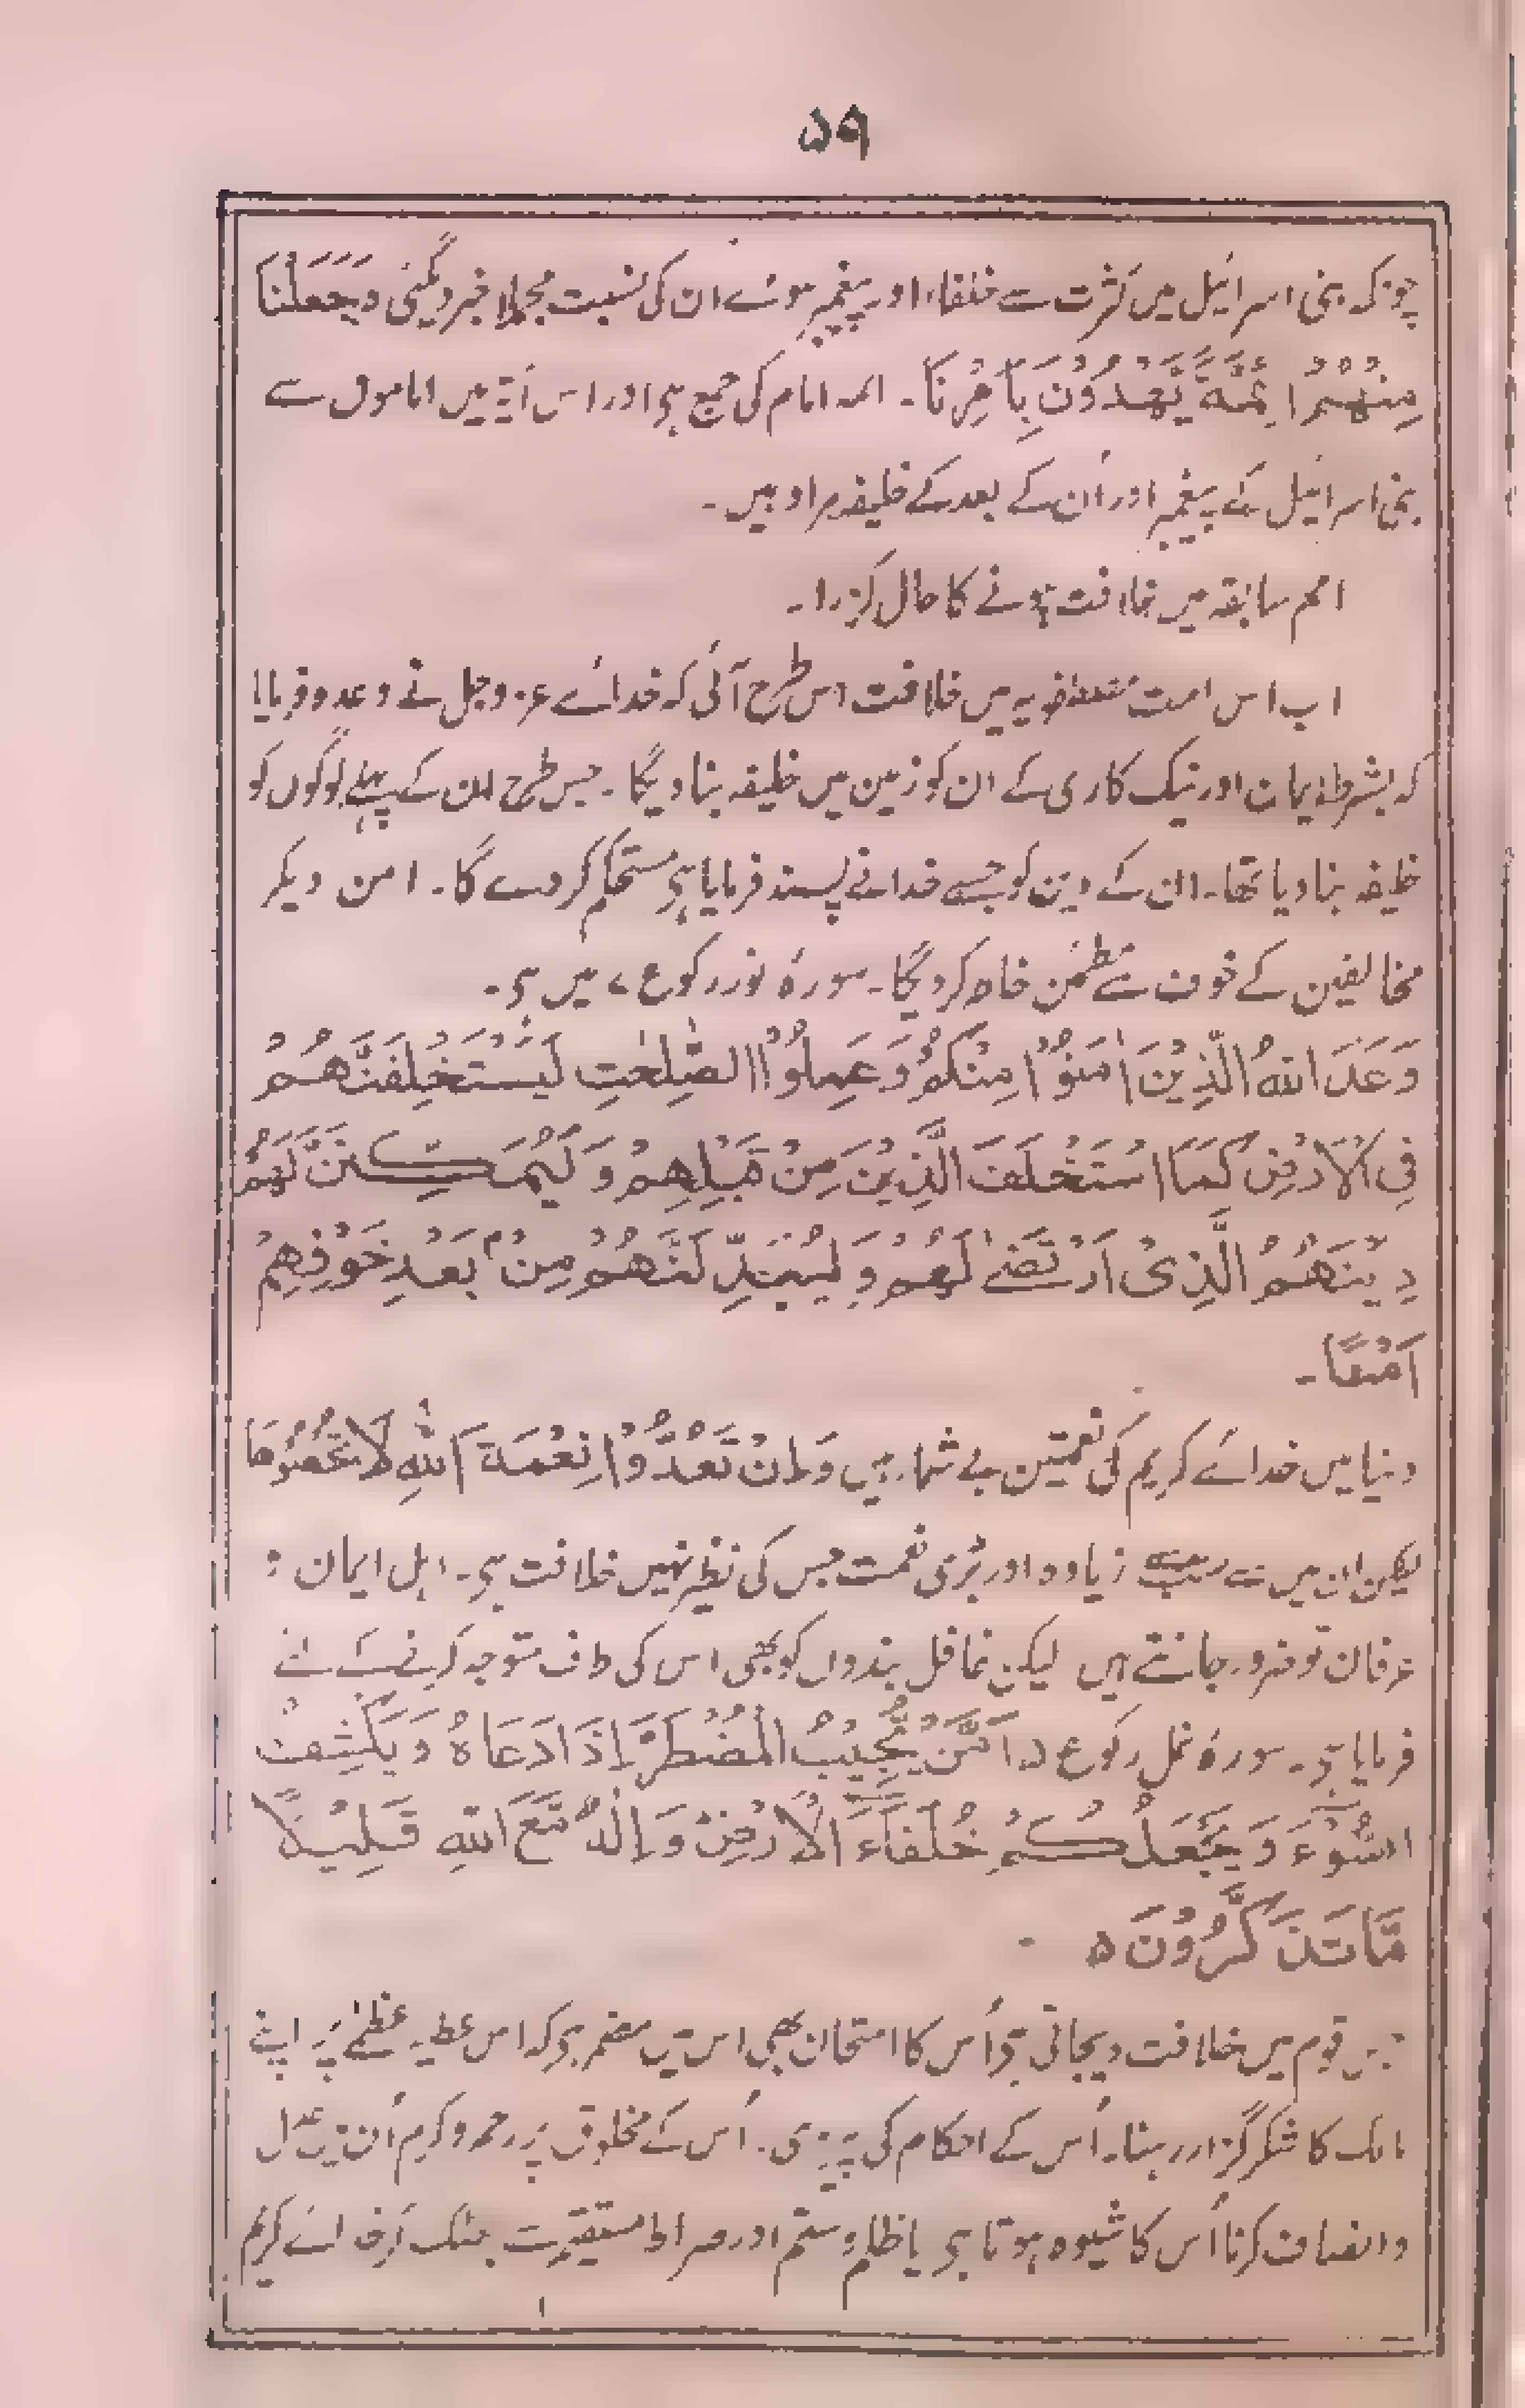 ۵۹
چونکہ بنی اسرائیل میں کثرت سے خلفاء اور پیغمبر ہوئے ان کی نسبت مجملا خبر دیگئی وَجَعَلْنَا
مِنْهُمْ اَئِمَّةً يَّهْدُوْنَ بِاَمْرِنَا۔ ائمہ امام کی جمع ہی اور اس آیۃ میں اماموں سے
بنی اسرائیل کے پیغمبر اور اُن کے بعد کے خلیفہ مراد ہیں۔
امم سابقہ میں خلافت ہونے کا حال گزرا۔
اب اس امت میں خلافت اس طرح آئی کہ خدائے عزوجل نے وعدہ فرمایا
کہ بشرط ایمان اور نیک کاری کے ان کو زمین میں خلیفہ بنا دیگا۔ جس طرح ان کے پہلے لوگوں کو
خلیفہ بنا دیا تھا۔ ان کے دین کو جسے خدا نے پسند فرمایا ہی مستحکم کر دے گا۔ امن دیکر
مخالفین کے خوف سے مطمئن خاہ کردیگا۔ سورۂ نور رکوع ۷ میں ہی۔
وَعَدَ اللهُ الَّذِيْنَ اٰمَنُوْا مِنْكُمْ وَعَمِلُوا الصّٰلِحٰتِ لَيَسْتَخْلِفَنَّهُمْ
فِي الْاَرْضِ كَمَا اسْتَخْلَفَ الَّذِيْنَ مِنْ قَبْلِهِمْ وَلَيُمَكِّنَنَّ لَهُمْ
دِيْنَهُمُ الَّذِى ارْتَضٰى لَهُمْ وَلَيُبَدِّلَنَّهُمْ مِنْۢ بَعْدِ خَوْفِهِمْ
اَمْنًا۔
دنیا میں خدائے کریم کی نعمتین بے شمار ہیں وَاِنْ تَعُدُّوْا نِعْمَةَ اللهِ لَا تُحْصُوْهَا
لیکن ان میں سے سب سے زیادہ اور بڑی نعمت جس کی نظیر نہیں خلافت ہی۔ اہل ایمان و
عرفان تو ضرور جانتے ہیں لیکن غافل بندوں کو بھی اس کی طرف متوجہ کرنے کے لئے
فرمایا ہی۔ سورۂ نمل رکوع ۵ اَمَّنْ يُّجِيْبُ الْمُضْطَرَّ اِذَا دَعَاهُ وَيَكْشِفُ
السُّوْٓءَ وَيَجْعَلُكُمْ خُلَفَآءَ الْاَرْضِ ءَاِلٰهٌ مَّعَ اللهِ قَلِيْلًا
مَّا تَذَكَّرُوْنَ ه
جس قوم میں خلافت دیجاتی ہی اُس کا امتحان بھی اس میں مضمر ہی کہ اس عطیہ عظمےٰ پر اپنے
مالک کا شکرگزار رہنا۔ اُس کے احکام کی پیروی۔ اُس کے مخلوق پر رحم و کرم اُن میں عدل
و انصاف کرنا اُس کا شیوہ ہوتا ہی یا ظلم و ستم اور صراط مستقیم سے بھٹک کر خدائے کریم